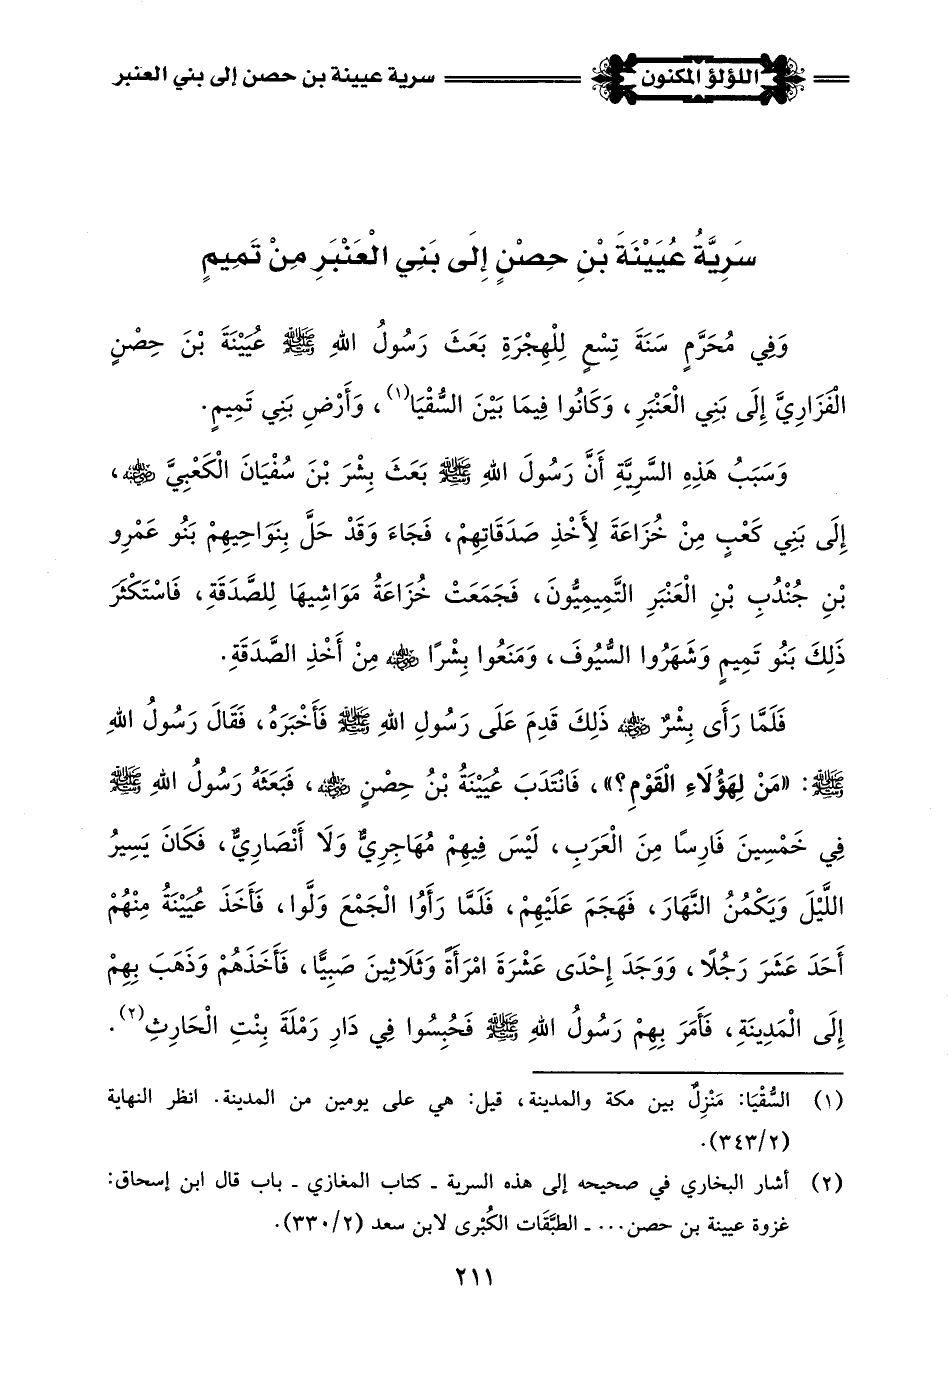 اللؤلؤ المكنون سرية عيينة بن حصن إلى بني العنبر
سَرِيَّةُ عُيَيْنَةَ بْنِ حِصْنٍ إِلَى بَنِي الْعَنْبَرِ مِنْ تَمِيمٍ
وَفِي مُحَرَّمٍ سَنَةَ تِسْعٍ لِلْهِجْرَةِ بَعَثَ رَسُولُ اللهِ ﷺ عُيَيْنَةَ بْنَ حِصْنٍ
الْفَزَارِيَّ إِلَى بَنِي الْعَنْبَرِ، وَكَانُوا فِيمَا بَيْنَ السُّقْيَا(١)، وَأَرْضِ بَنِي تَمِيمٍ.
وَسَبَبُ هَذِهِ السَّرِيَّةِ أَنَّ رَسُولَ اللهِ ﷺ بَعَثَ بِشْرَ بْنَ سُفْيَانَ الْكَعْبِيَّ رضي الله عنه،
إِلَى بَنِي كَعْبٍ مِنْ خُزَاعَةَ لِأَخْذِ صَدَقَاتِهِمْ، فَجَاءَ وَقَدْ حَلَّ بِنَوَاحِيهِمْ بَنُو عَمْرِو
بْنِ جُنْدُبِ بْنِ الْعَنْبَرِ التَّمِيمِيُّونَ، فَجَمَعَتْ خُزَاعَةُ مَوَاشِيهَا لِلصَّدَقَةِ، فَاسْتَكْثَرَ
ذَلِكَ بَنُو تَمِيمٍ وَشَهَرُوا السُّيُوفَ، وَمَنَعُوا بِشْرًا رضي الله عنه مِنْ أَخْذِ الصَّدَقَةِ.
فَلَمَّا رَأَى بِشْرٌ رضي الله عنه ذَلِكَ قَدِمَ عَلَى رَسُولِ اللهِ ﷺ فَأَخْبَرَهُ، فَقَالَ رَسُولُ اللهِ
ﷺ: «مَنْ لِهَؤُلَاءِ الْقَوْمِ؟»، فَانْتَدَبَ عُيَيْنَةُ بْنُ حِصْنٍ رضي الله عنه، فَبَعَثَهُ رَسُولُ اللهِ ﷺ
فِي خَمْسِينَ فَارِسًا مِنَ الْعَرَبِ، لَيْسَ فِيهِمْ مُهَاجِرِيٌّ وَلَا أَنْصَارِيٌّ، فَكَانَ يَسِيرُ
اللَّيْلَ وَيَكْمُنُ النَّهَارَ، فَهَجَمَ عَلَيْهِمْ، فَلَمَّا رَأَوُا الْجَمْعَ وَلَّوا، فَأَخَذَ عُيَيْنَةُ مِنْهُمْ
أَحَدَ عَشَرَ رَجُلًا، وَوَجَدَ إِحْدَى عَشْرَةَ امْرَأَةً وَثَلَاثِينَ صَبِيًّا، فَأَخَذَهُمْ وَذَهَبَ بِهِمْ
إِلَى الْمَدِينَةِ، فَأَمَرَ بِهِمْ رَسُولُ اللهِ ﷺ فَحُبِسُوا فِي دَارِ رَمْلَةَ بِنْتِ الْحَارِثِ(٢).
(١) السُّقْيَا: مَنْزِلٌ بين مكة والمدينة، قيل: هي على يومين من المدينة. انظر النهاية
(٣٤٣/٢).
(٢) أشار البخاري في صحيحه إلى هذه السرية ـ كتاب المغازي ـ باب قال ابن إسحاق:
غزوة عيينة بن حصن... ـ الطبَّقَات الكُبْرى لابن سعد (٣٣٠/٢).
٢١١